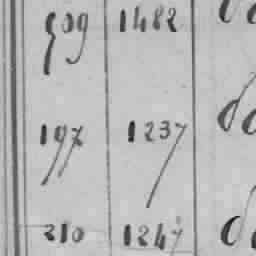 509 1482
197 1237 do
210 1247